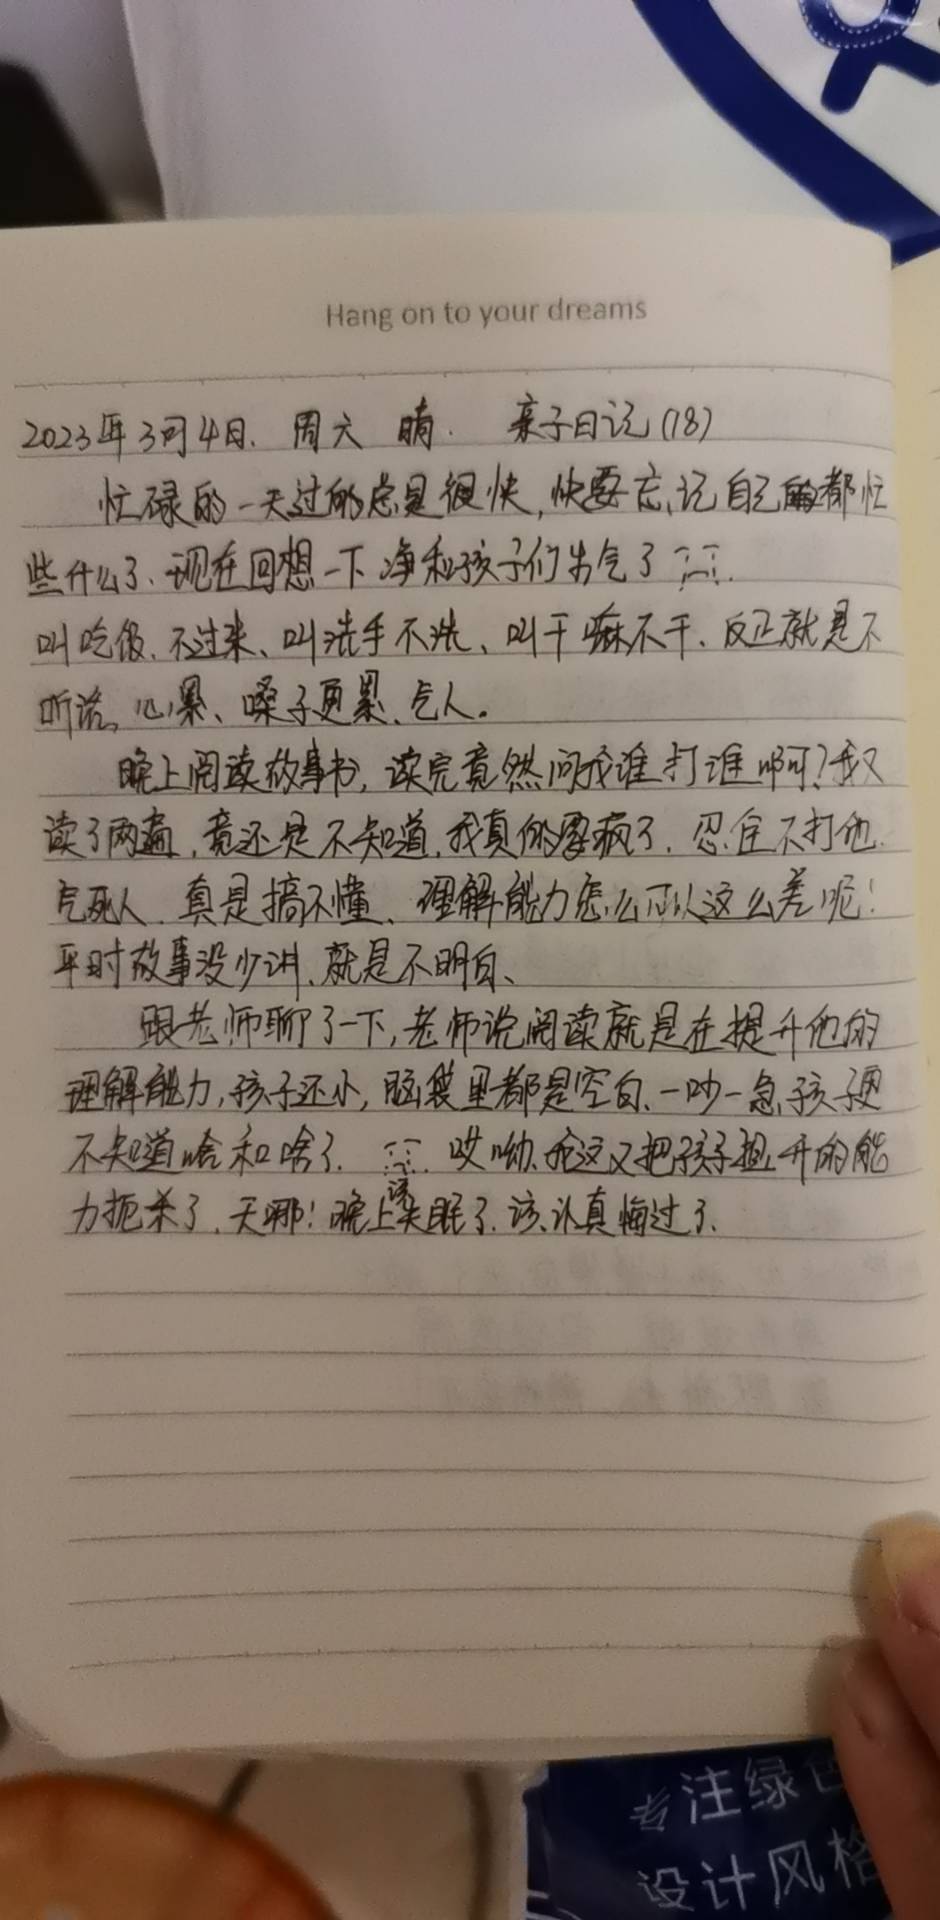 Hang on to your dreams
2023年3月4日. 周六 晴. 亲子日记(18)
忙碌的一天过的总是很快,快要忘记自己都忙
些什么了、现在回想一下净和孩子们生气了
叫吃饭、不过来、叫洗手不洗、叫干嘛不干、反正就是不
听话。心累、嗓子更累、气人。
晚上阅读故事书,读完竟然问我谁打谁啊?我又
读了两遍,竟还是不知道,我真的要疯了.忍住不打他.
气死人、真是搞不懂、理解能力怎么可以这么差呢!
平时故事没少讲、就是不明白、
跟老师聊了一下,老师说阅读就是在提升他的
理解能力,孩子还小,脑袋里都是空白、一吵一急,孩子更
不知道啥和啥了. 哎呦、我这又把孩子提升的能
力扼杀了.天哪!晚上该失眠了.该认真悔过了.
专注绿色
设计风格